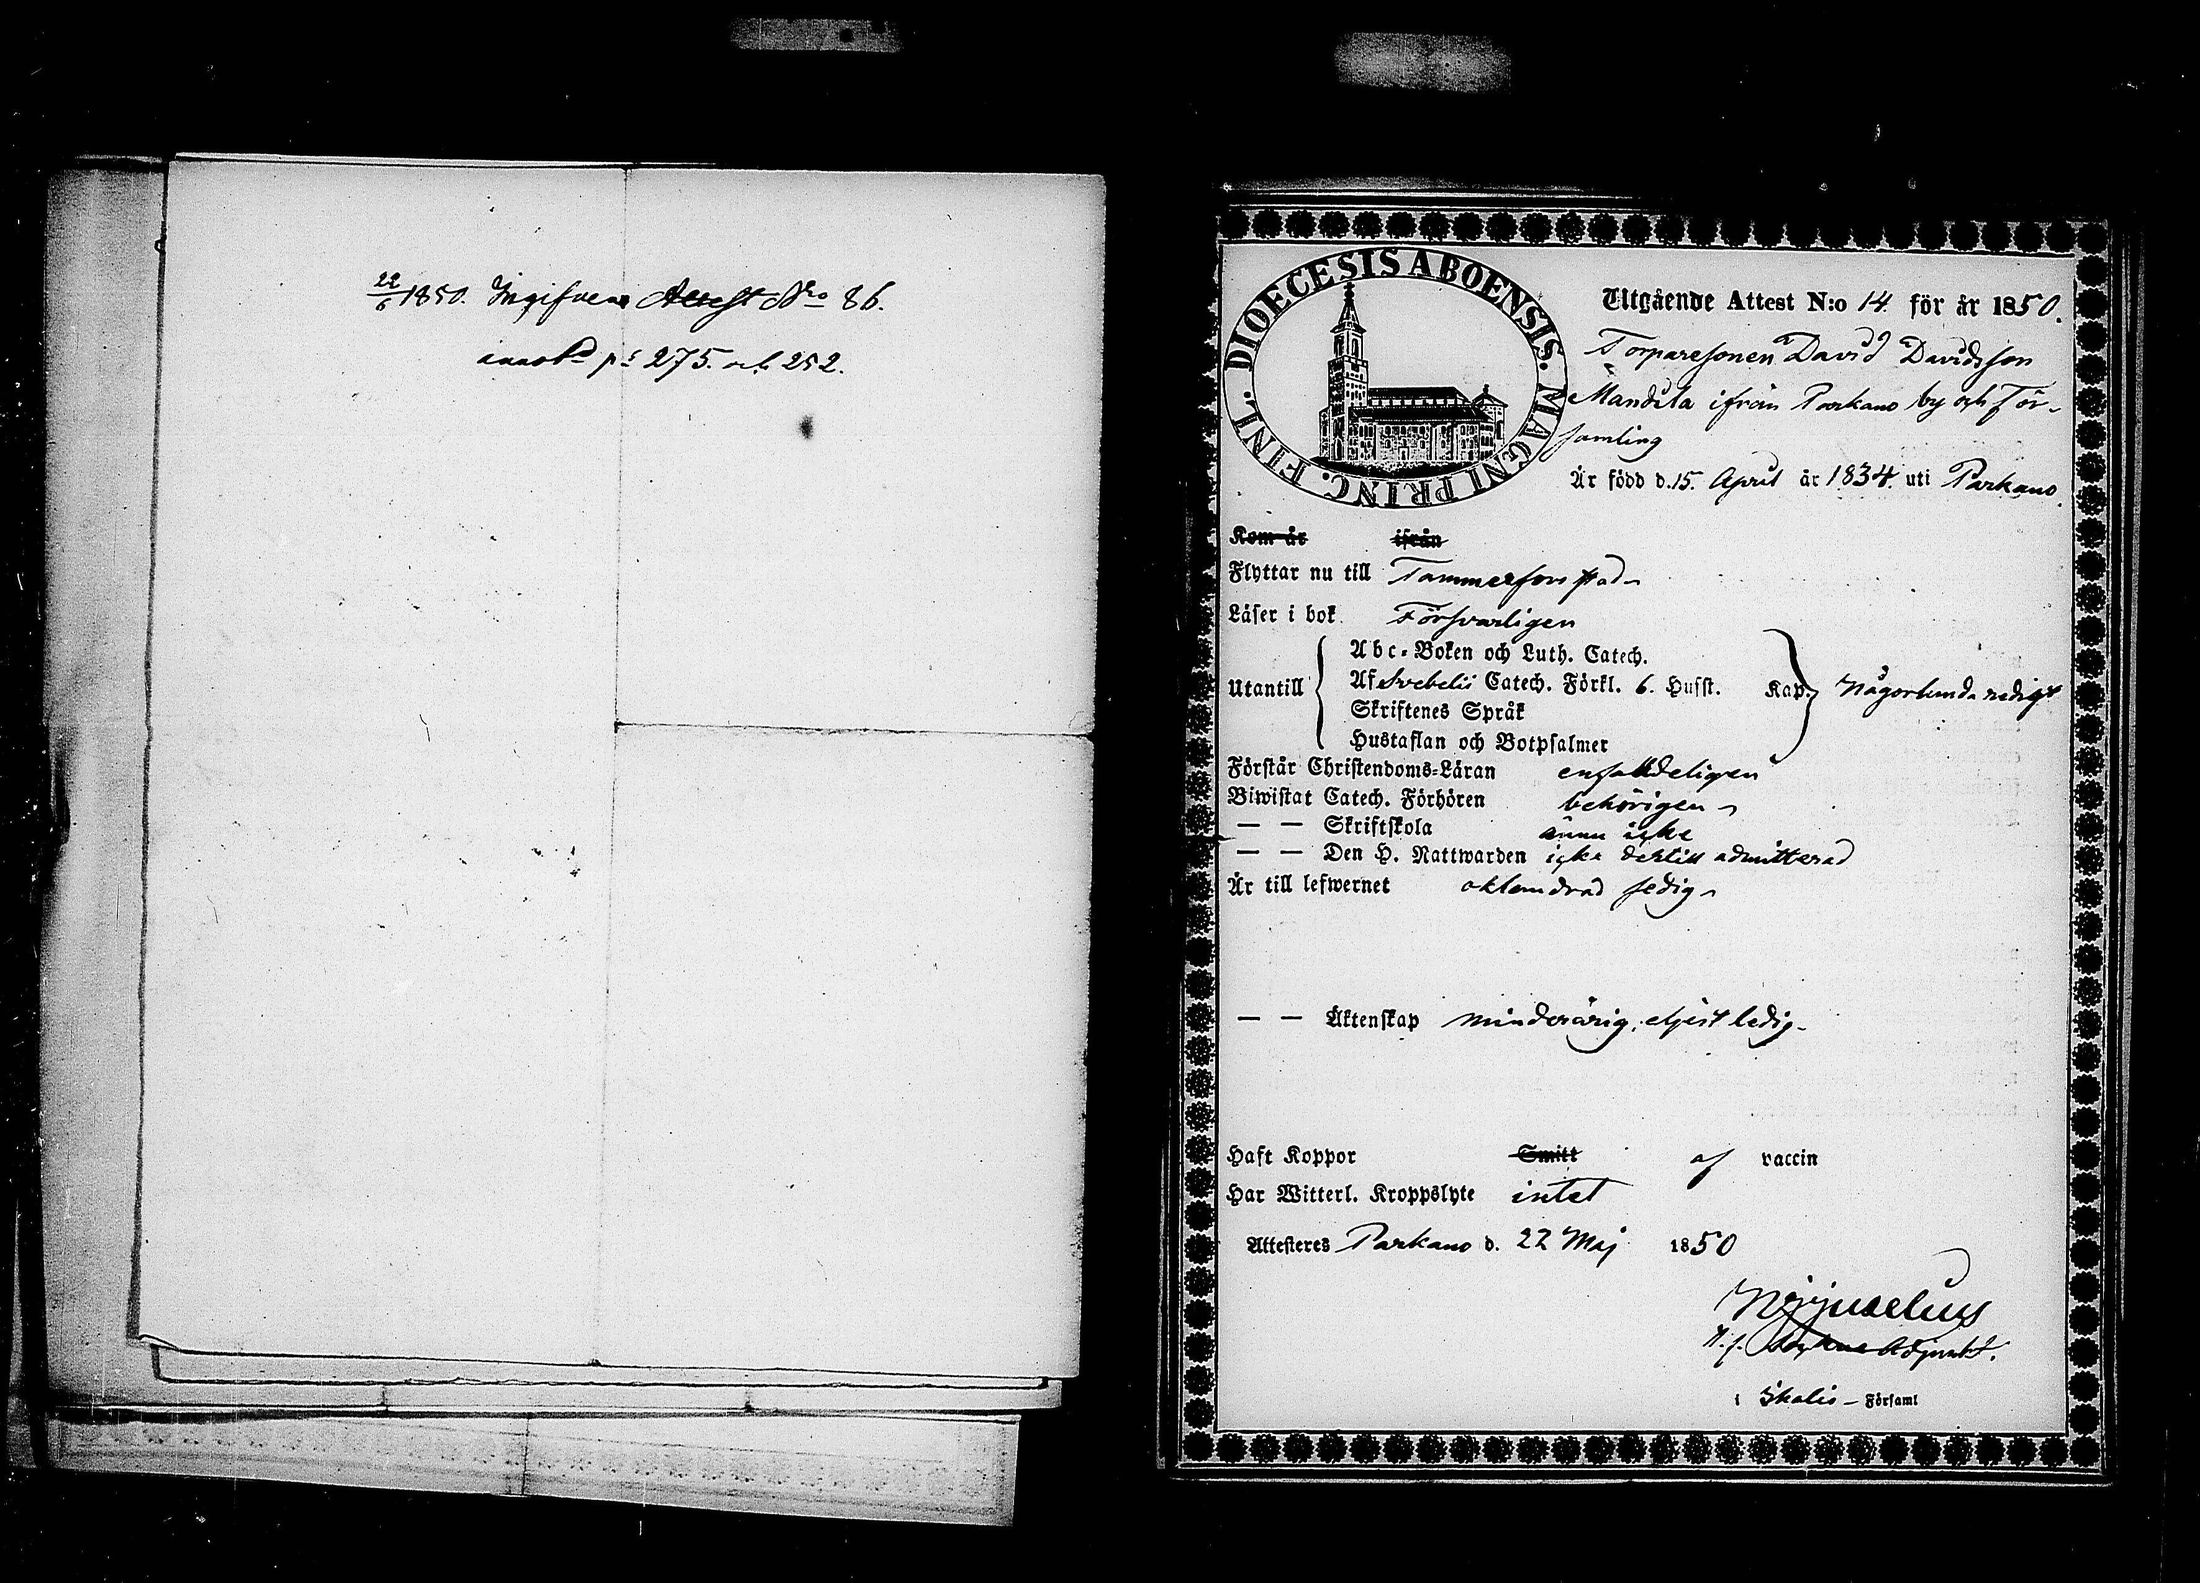 22/6 1850. Ingifven Attest Nro 86.
annotd ps 275. och 252.
DIOECESIS ABOENSIS. MAGNI PRINC. FINL.
Utgående Attest N:o 14 för år 1850.
Torparesonen David Davidsson
Mandila ifrån Parkano by och För-
samling
Är född d. 15. April år 1834. uti Parkano.
Kom år ifrån
Flyttar nu till Tammerfors stad
Läser i bok Försvarligen
Abc-Boken och Luth. Catech.
Utantill Af Svebelii Catech. Förkl. 6. Husst. Kap. Någorlunda redigt
Skriftenes Språk
Hustaflan och Botpsalmer
Förstår Christendoms-Läran enfaldeligen
Biwistat Catech. Förhören behörigen
— — Skriftskola ännu icke
— — Den H. Nattwarden icke dertill admitterad
Är till lefwernet oklandrad sedig
— — Äktenskap minderårig, eljest ledig
Haft Koppor Smitt af vaccin
Har Witterl. Kroppslyte intet
Attesteres Parkano d. 22 Maj 1850
Adjunkt.
i Ikalis Församl